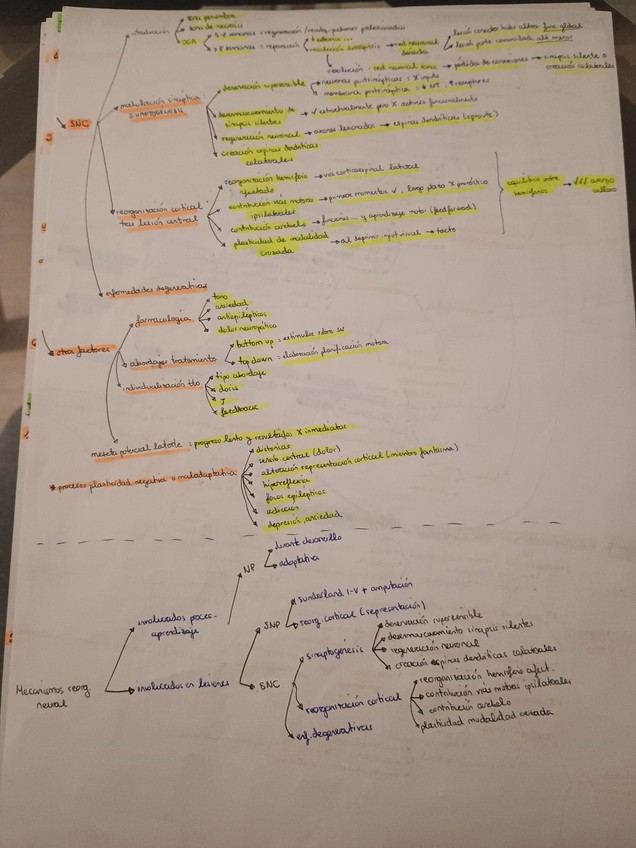 zona penumbra
introducción
DCA
5-8 semanas = regeneración / reorg. patrones
> 8 semanas = reparación
resolución diasquisis → red neuronal
local conector hubs altera func. global
local parte comunidades alt. menor
resolución = red neuronal sana → pérdida de conexiones → sinapsis silente o creación colaterales
SNC
modulación sináptica
SINAPTOGÉNESIS
denervación supersensible
neuronas postsinápticas = X inputs
membrana postsináptica = ↓ NT, ↑ receptores
desenmascaramiento de sinapsis silentes → ✓ estructuralmente pero X activas funcionalmente
regeneración neuronal → axones lesionados → espinas dendríticas (sprouts)
creación espinas dendríticas colaterales
reorganización cortical tras lesión central
reorganización hemisferio afectado → vía corticoespinal lateral
contribución vías motoras ipsilaterales → primeros momentos ✓, largo plazo X pronóstico
contribución cerebelo → funciones y aprendizaje motor (feedforward)
plasticidad de modalidad cruzada → al suprimir input visual → tacto
equilibrio entre hemisferios → ↓↓↓ cuerpo calloso
enfermedades degenerativas
otros factores
farmacología
tono
ansiedad
antiepilépticos
dolor neuropático
abordajes tratamiento
bottom up = estímulos sobre SN
top down = elaboración planificación motora
individualización tto
tipo abordaje
dosis
T
feedback
meseta potencial latente = progreso lento y resultados X inmediatos
* procesos plasticidad negativa o maladaptativa
distonías
sensib. central (dolor)
alteración representación cortical (miembro fantasma)
hiperreflexia
focos epilépticos
adicción
depresión, ansiedad
Mecanismos reorg. neural
involucrados proces. aprendizaje
NP
durante desarrollo
adaptativa
involucrados en lesiones
SNP
sunderland I-V + amputación
reorg. cortical (representación)
SNC
sinaptogénesis
denervación supersensible
desenmascaramiento sinapsis silentes
regeneración neuronal
creación espinas dendríticas colaterales
reorganización cortical
reorganización hemisferio afect.
contribución vías motoras ipsilaterales
contribución cerebelo
plasticidad modalidad cruzada
enf. degenerativas